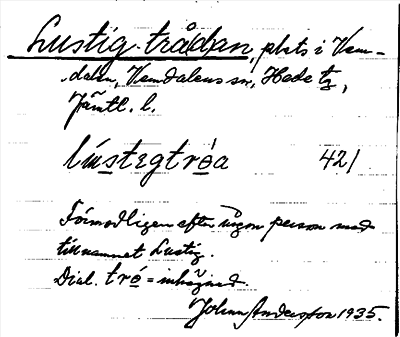 Lustig-trådan, plats i Vem-
dalen, Vemdalens sn, Hede tg,
Jämtl. l.
lústegtróa 421
Förmodligen efter någon person med
tillnamnet Lustig.
Dial. tró = inhägnad.
Johan Andersson 1935.